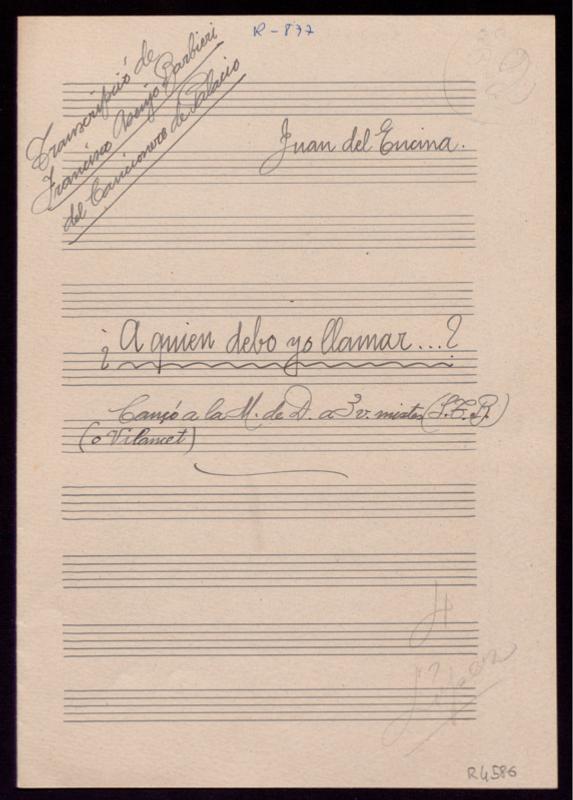 R-877
Transcripció de
Francisco Asenjo Barbieri
del Cancionero de Palacio
Juan del Encina.
¿A quien debo yo llamar...?
Cançó a la M. de D. a 3 v. mixtes (S.T.B.)
(o Vilancet)
R4586